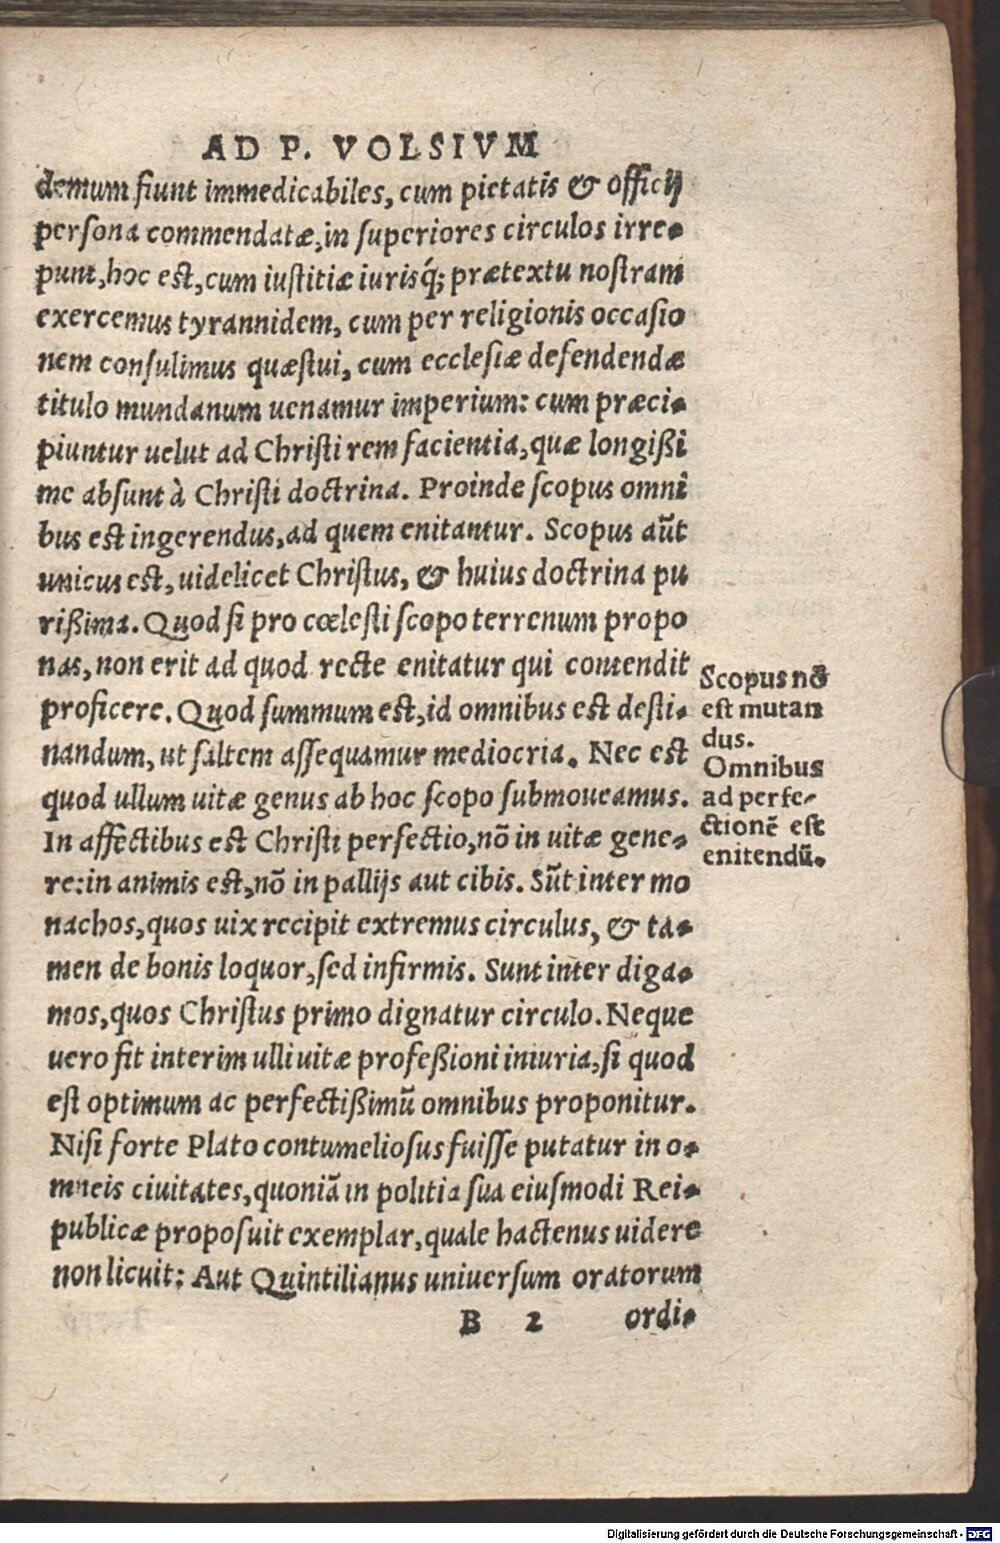 AD P. VOLSIVM
demum fiunt immedicabiles, cum pietatis & officij
persona commendatæ, in superiores circulos irre-
punt, hoc est, cum iustitiæ iurisq́; prætextu nostram
exercemus tyrannidem, cum per religionis occasio
nem consulimus quæstui, cum ecclesiæ defendendæ
titulo mundanum uenamur imperium: cum præci-
piuntur uelut ad Christi rem facientia, quæ longißi
me absunt à Christi doctrina. Proinde scopus omni
bus est ingerendus, ad quem enitantur. Scopus aūt
unicus est, uidelicet Christus, & huius doctrina pu
rißima. Quod si pro cœlesti scopo terrenum propo
nas, non erit ad quod recte enitatur qui contendit
proficere. Quod summum est, id omnibus est desti-
nandum, ut saltem assequamur mediocria. Nec est
quod ullum uitæ genus ab hoc scopo submoueamus.
In affectibus est Christi perfectio, nō in uitæ gene-
re: in animis est, nō in pallijs aut cibis. Sūt inter mo
nachos, quos uix recipit extremus circulus, & ta-
men de bonis loquor, sed infirmis. Sunt inter diga-
mos, quos Christus primo dignatur circulo. Neque
uero fit interim ulli uitæ profeßioni iniuria, si quod
est optimum ac perfectißimū omnibus proponitur.
Nisi forte Plato contumeliosus fuisse putatur in o-
mneis ciuitates, quoniā in politia sua eiusmodi Rei-
publicæ proposuit exemplar, quale hactenus uidere
non licuit: Aut Quintilianus uniuersum oratorum
B 2 ordi-
Scopus nō
est mutan
dus.
Omnibus
ad perfe-
ctionē est
enitendū.
Digitalisierung gefördert durch die Deutsche Forschungsgemeinschaft - DFG